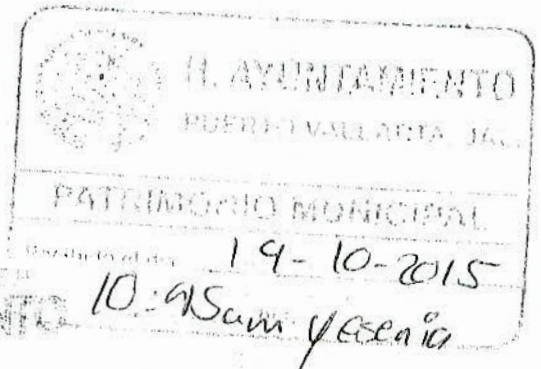 H. AYUNTAMIENTO
PUERTO VALLARTA, JAL.
PATRIMONIO MUNICIPAL
Recibido el día 19-10-2015
10:45am yesenia